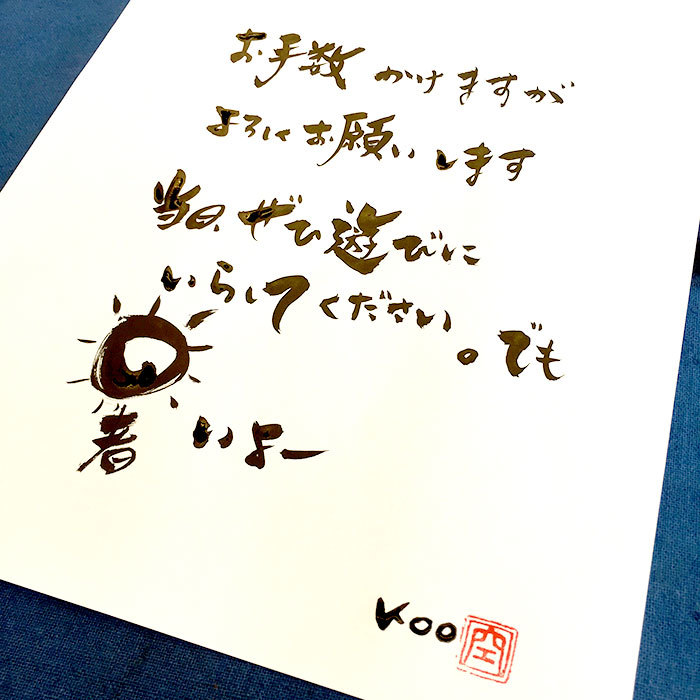 お手数かけますが
よろしくお願いします
当日、ぜひ遊びに
いらしてください。でも
暑いよー
Koo 空